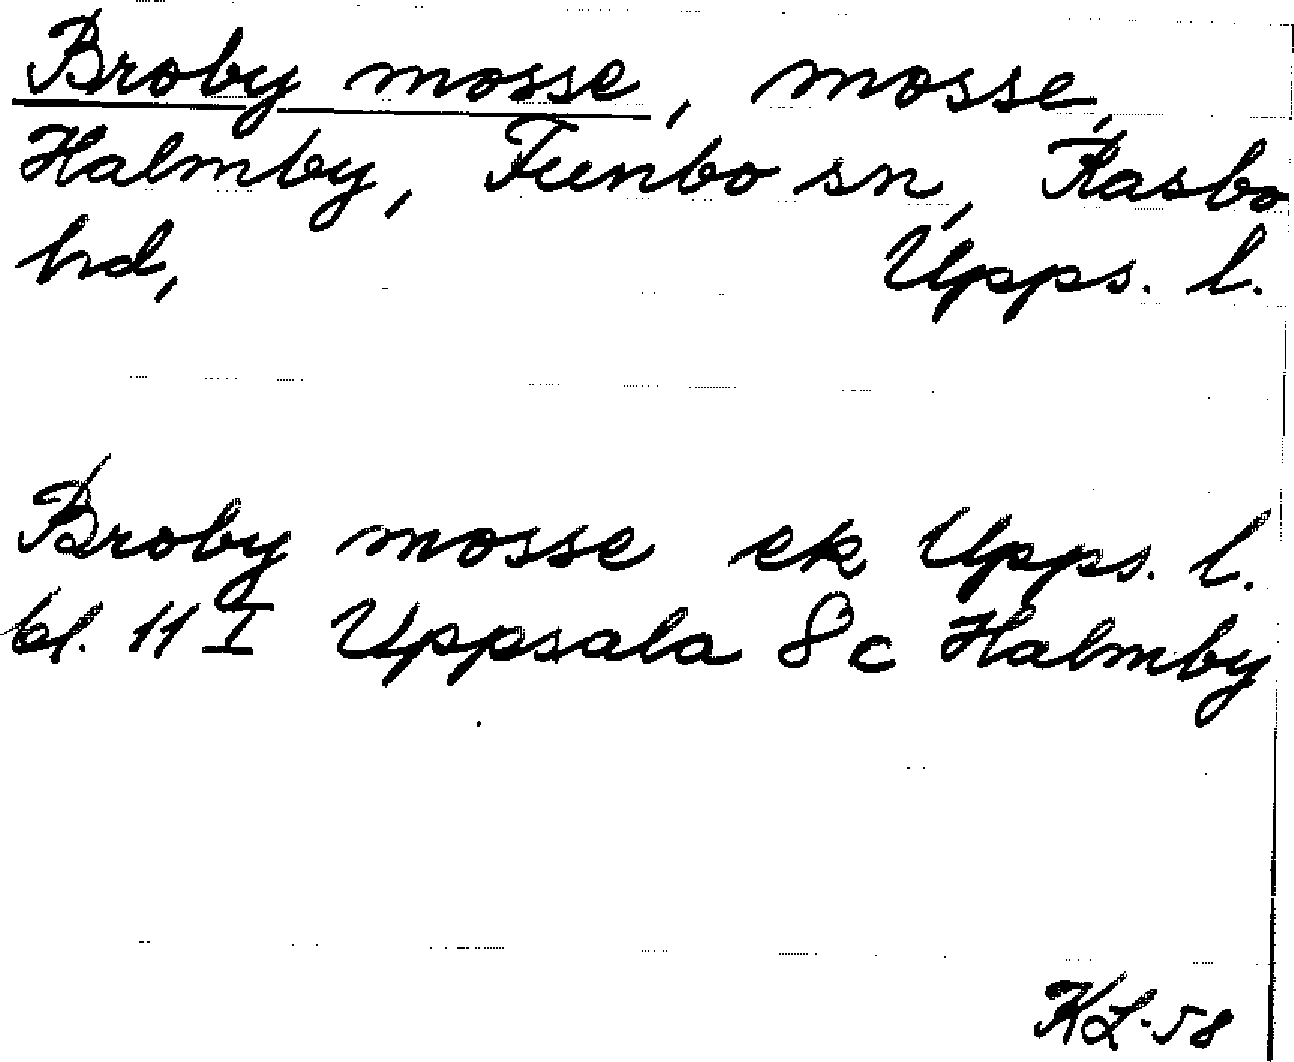 Broby mosse, mosse,
Halmby, Funbo sn, Rasbo
hd, Upps. l.
Broby mosse ek Upps. l.
bl. 11 I Uppsala 8c Halmby
KL-58